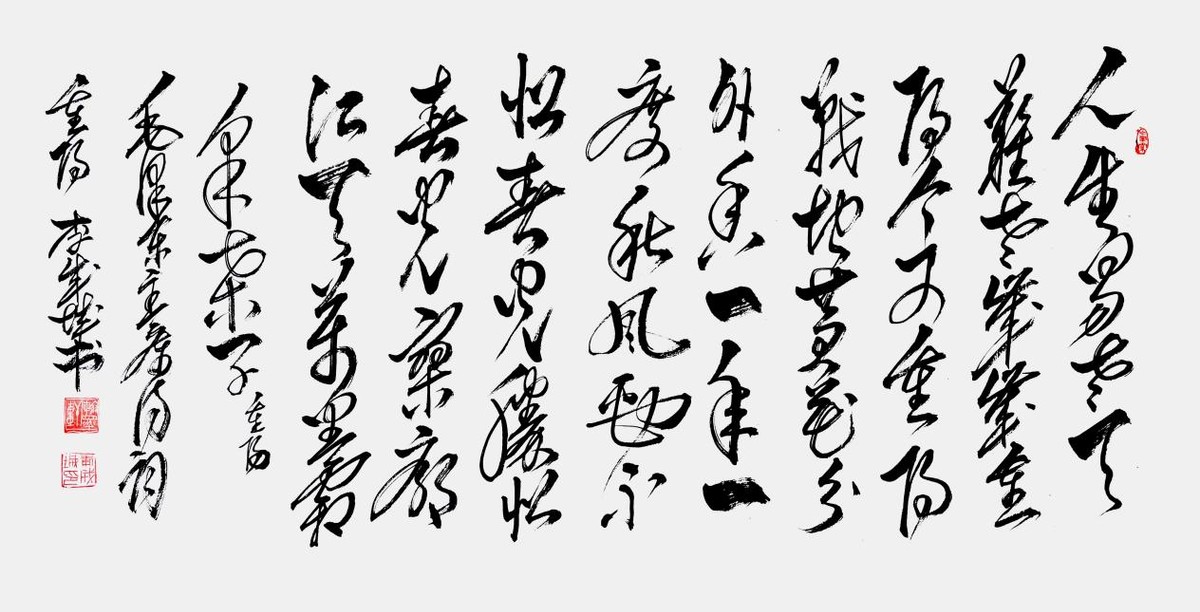 人生易老天
難老歲歲重
阳今又重阳
战地黄花分
外香一年一
度秋風劲不
似春光勝似
春光寥廓
江天萬里霜
采桑子重阳
毛泽东主席诗词
重阳 李成 书